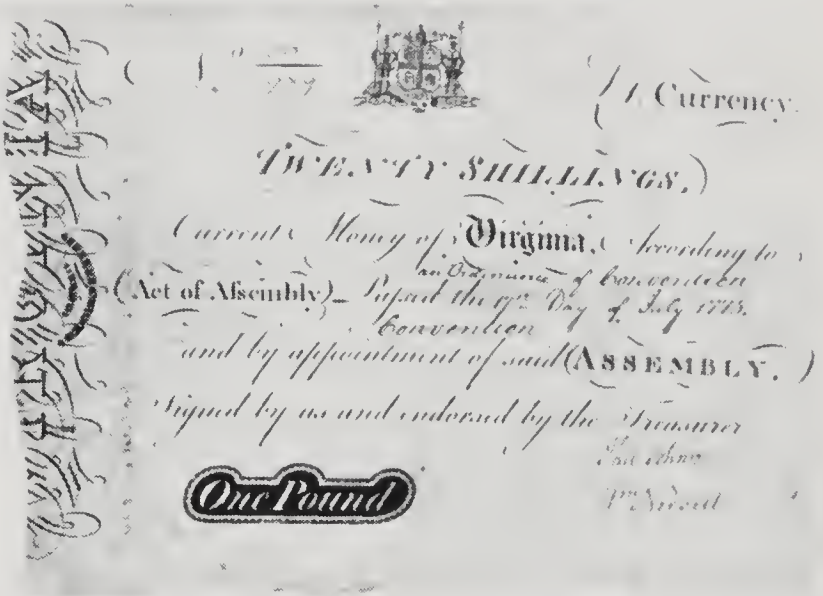 Currency.
TWENTY SHILLINGS.
Current Money of Virginia, According to
an Ordinance of Convention
(Act of Aſsembly) Paſsed the 17th Day of July 1775.
Convention
and by appointment of said (ASSEMBLY.)
Signed by us and endorsed by the Treasurer
One Pound